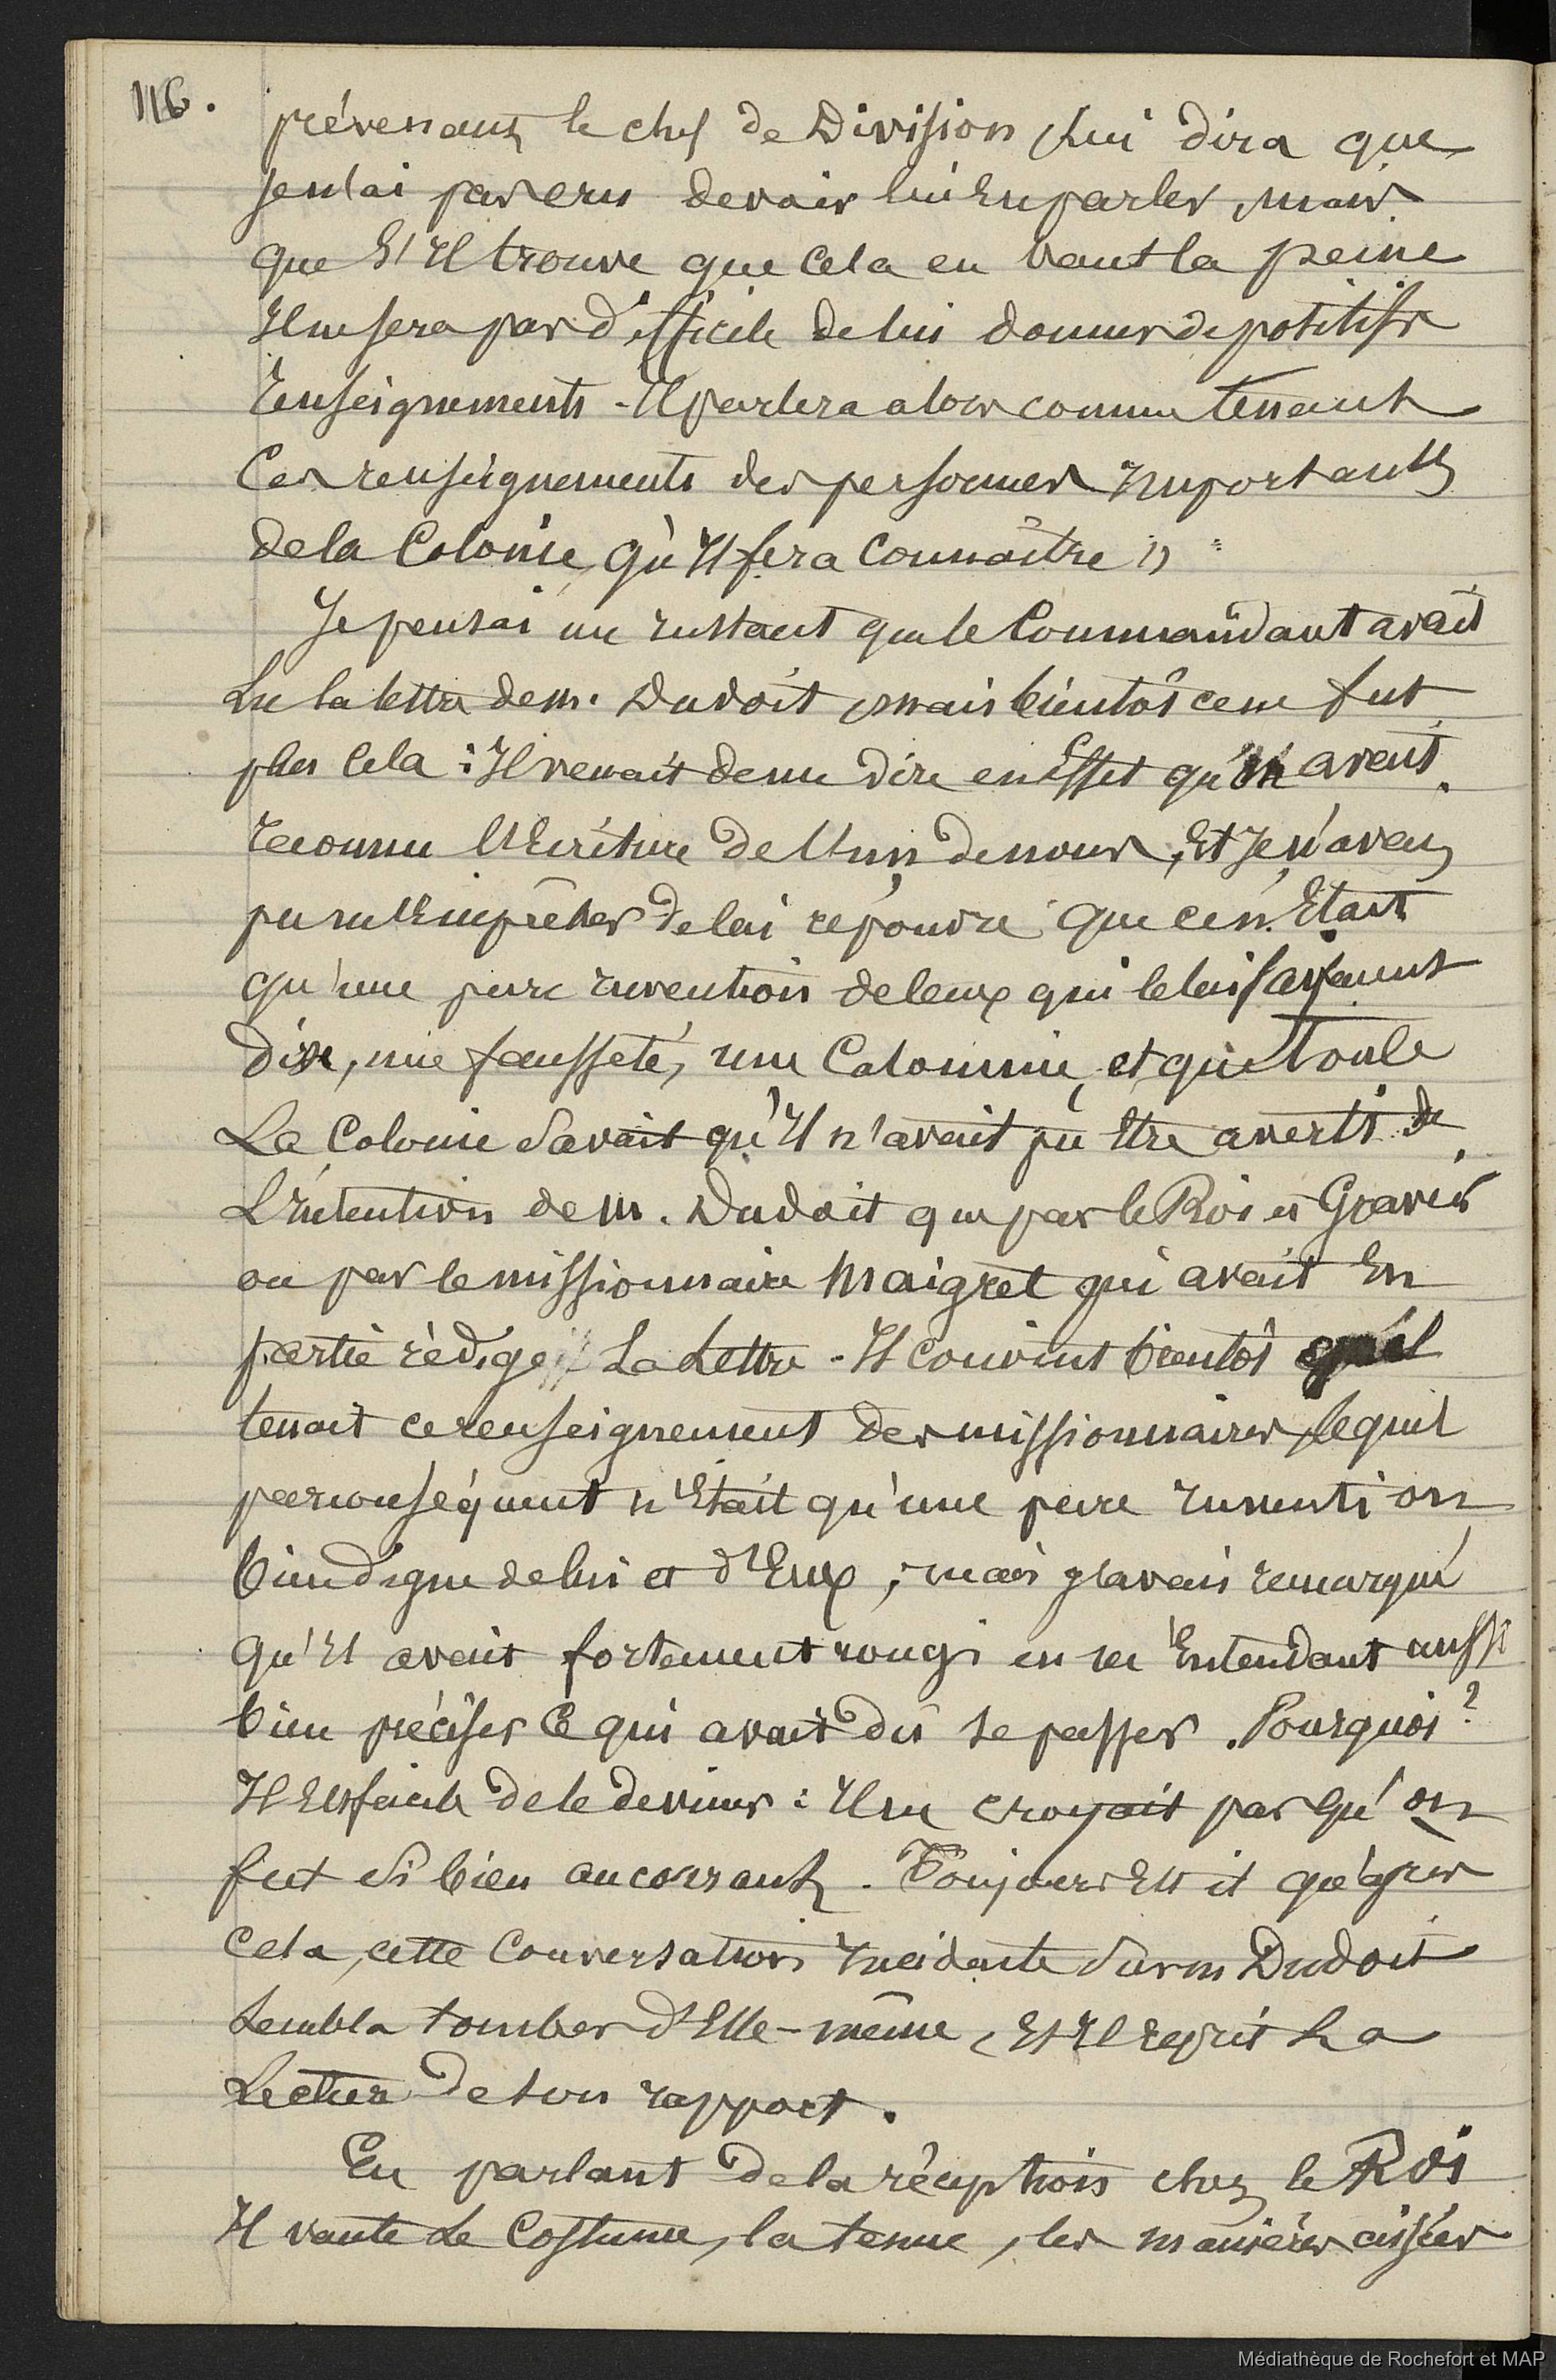 116.
prévenant le chef de Division, lui dira que
je n'ai pas cru devoir lui En parler, mais
que S'Il trouve que Cela en vaut la peine
Il ne sera pas d'ifficile de lui donner de positifs
renseignements - Il parlera alors comme tenant
Ces renseignements des personnes Importantes
de la Colonie, qu'Il fera Connaître »
Je pensai un Instant que le Commandant avait
Lu la lettre de m. Dudoit, mais bientôt ce ne fut
plus Cela : Il venait de me dire en Effet qu'on avait
reconnu l'Ecriture de l'un de nous, Et Je n'avais
pu m'Empêcher de lui répondre que ce n'Etait
qu'une pure Invention de ceux qui le lui faisaient
dire, une fausseté, une Calomnie, et que toute
La Colonie Savait qu'Il n'avait pu Etre averti de
L'Intention de m. Dudoit que par le Roi et
ou par le missionnaire Maigret qui avait En
partie rédigé La Lettre - Il convint bientôt qu'il
tenait ce renseignement des missionnaires, lequel
par conséquent n'Etait qu'une pure Invention
bien digne de lui et d'Eux ; mais j'avais remarqué
qu'Il avait fortement rougi en m'Entendant aussi
bien préciser Ce qui avait dû se passer. Pourquoi ?
Il Est facile de le deviner : Il ne croyait pas qu'on
fut Si bien au courant. Toujours Est il qu'après
Cela, cette Conversation Incidente Sur m Dudoit
Sembla tomber d'Elle-même, Et Il reprit La
Lecture de son rapport.
En parlant de la réception chez le Roi
Il vante Le Costume, la tenue, les manières aisées
Médiathèque de Rochefort et MAP